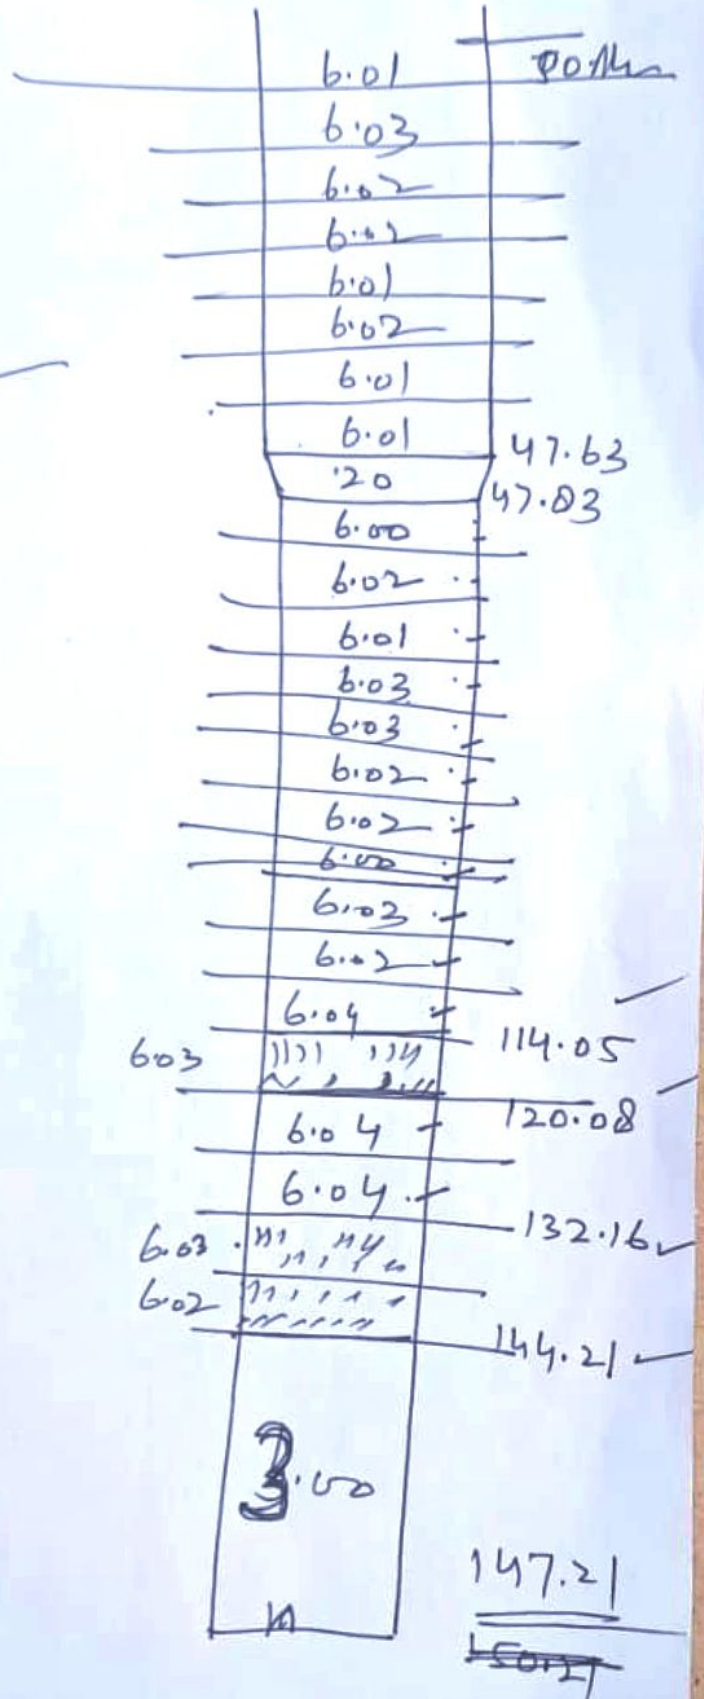 6.01
6.03
6.02
6.02
6.01
6.02
6.01
6.01 47.63
.20 47.83
6.00
6.02
6.01
6.03
6.03
6.02
6.02
6.00
6.03
6.02
6.04 114.05
6.03
120.08
6.04
6.04 132.16
6.03
6.02
144.21
3.00
147.21
150.21